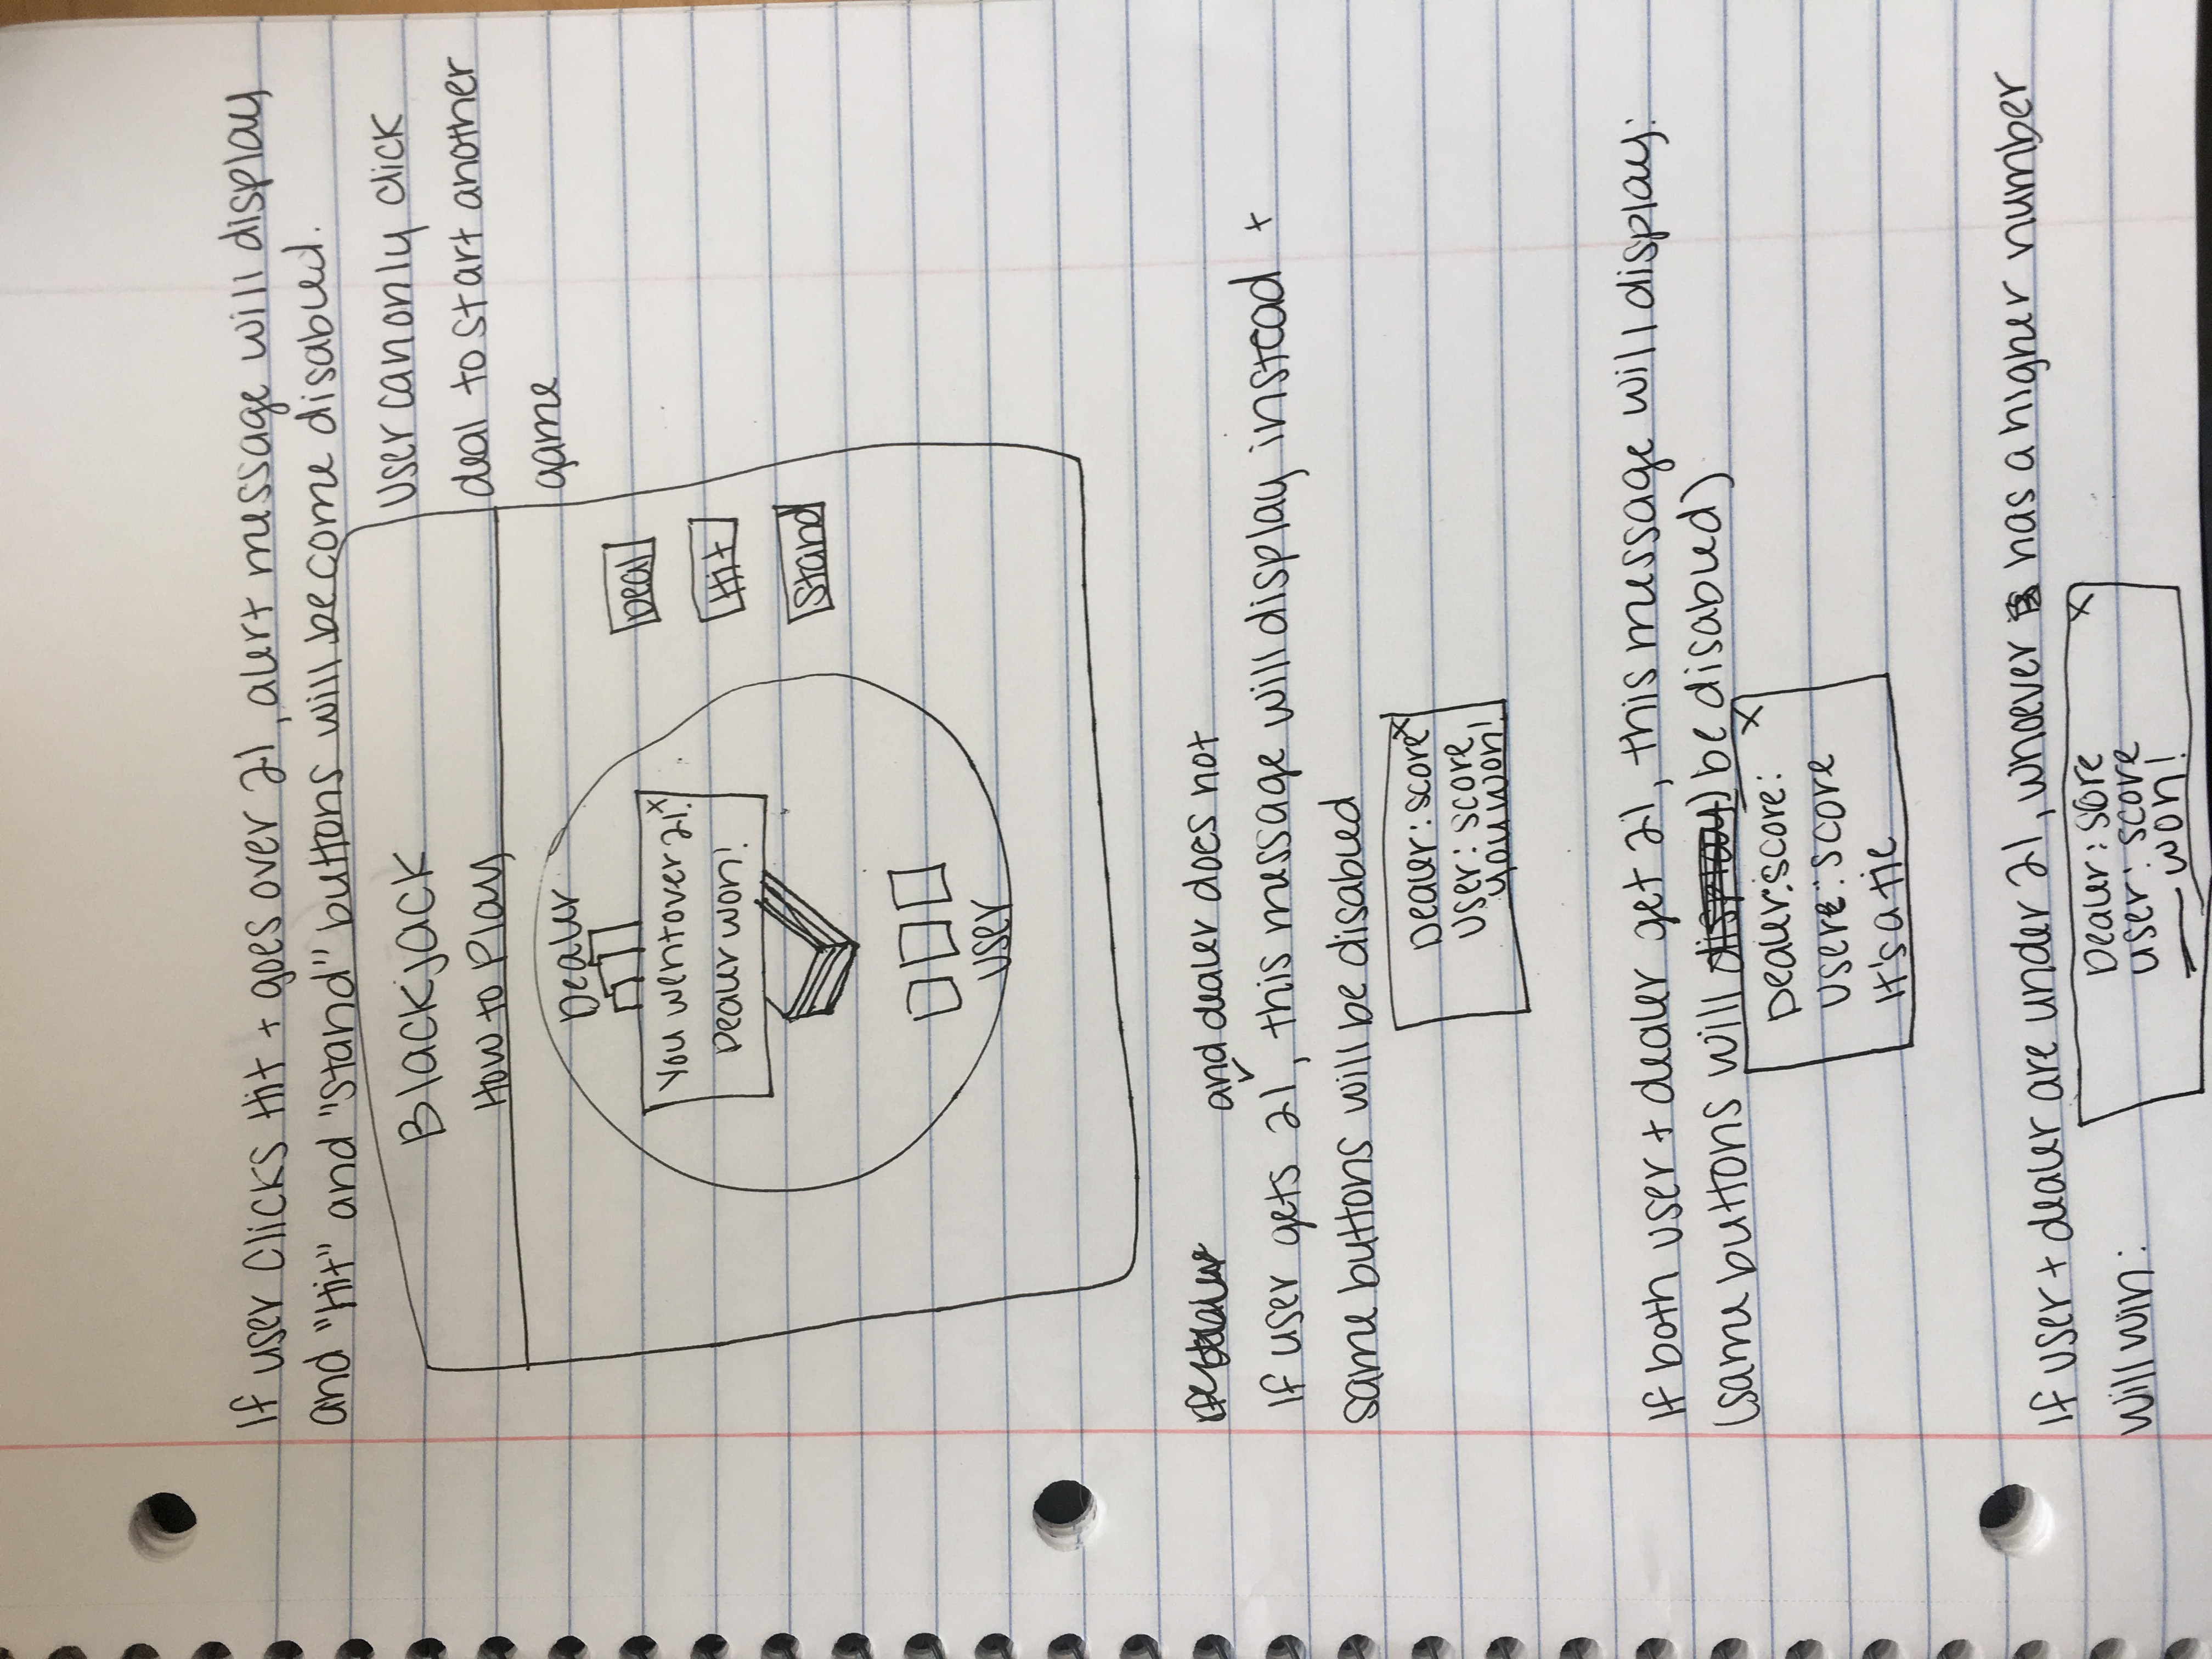 If user clicks Hit + goes over 21, alert message will display
and "Hit" and "Stand" buttons will become disabled.
Blackjack
How to Play
User can only click
deal to start another
game
Dealer
You went over 21. x
Dealer won!
Deal
Hit
Stand
user
and dealer does not
If user gets 21, this message will display instead +
same buttons will be disabled
Dealer: score x
User: score
you won!
If both user + dealer get 21, this message will display:
(same buttons will display) be disabled)
Dealer: score: x
User: score
It's a tie
If user + dealer are under 21, whoever has a higher number
will win:
Dealer: sore x
user: score
___ won!